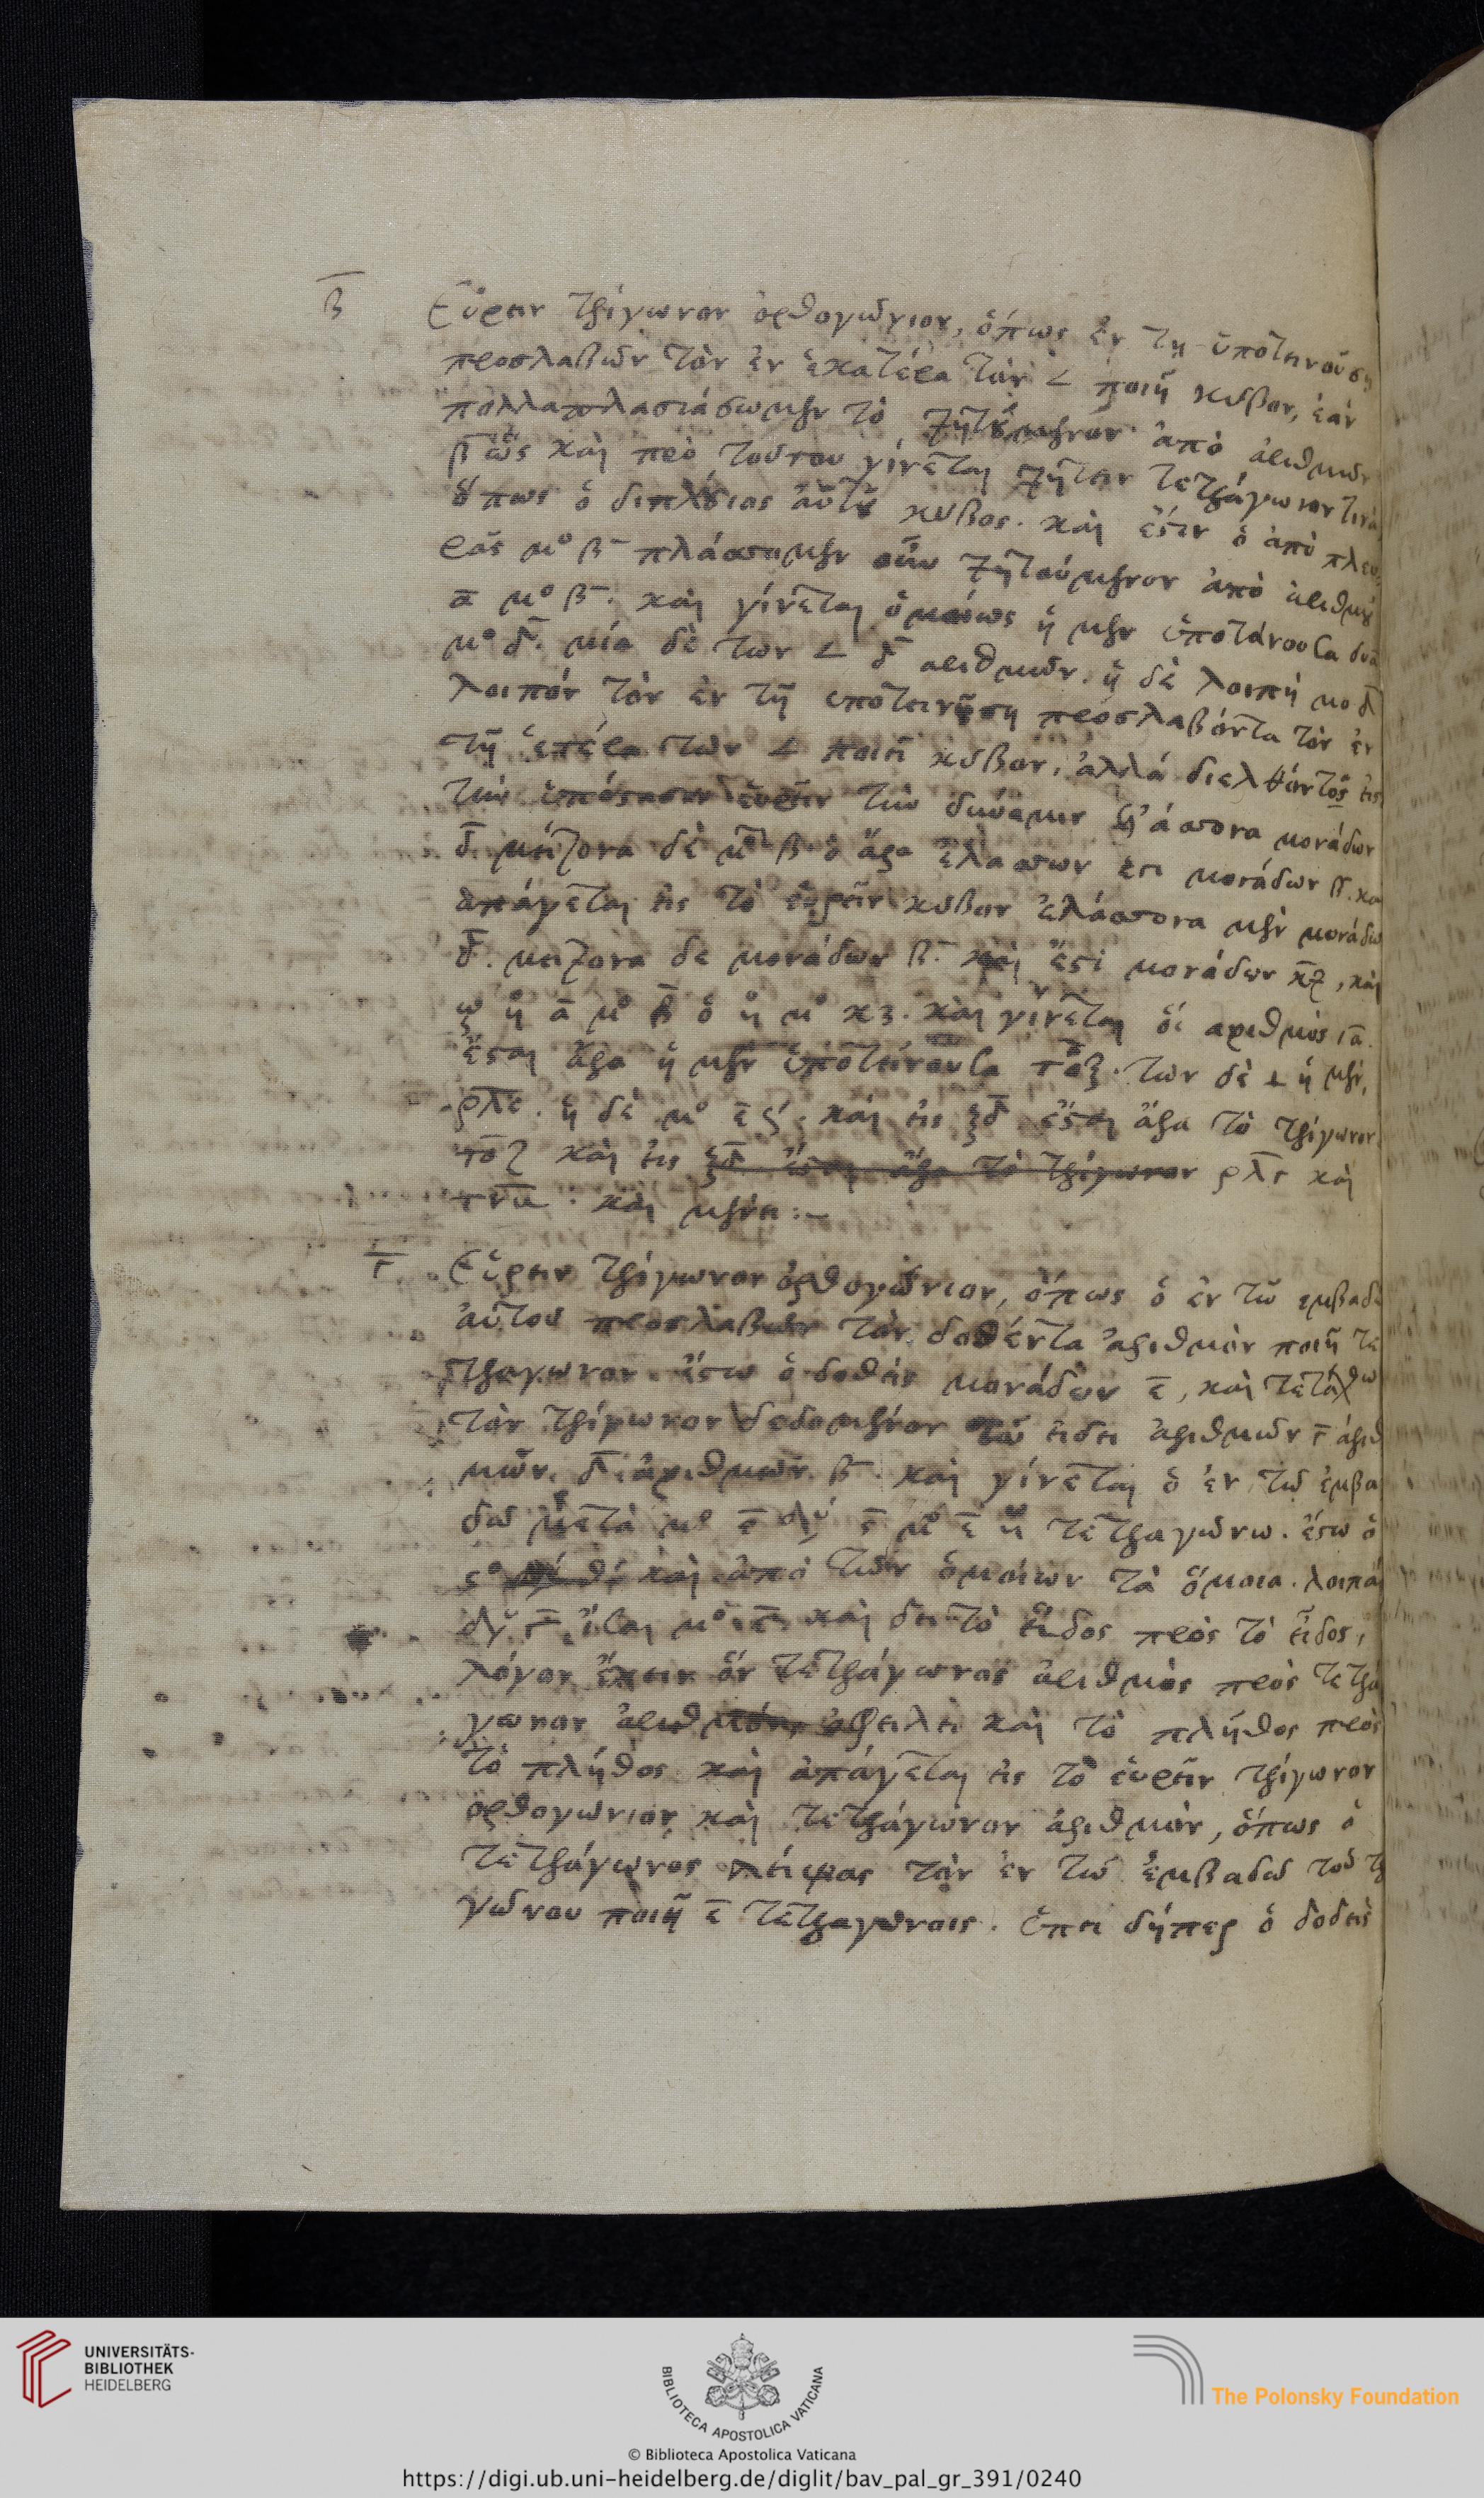 β
Εὑρειν τρίγωνον ὀρθογώνιον, ὅπως ἐν τη ὑποτεινούσῃ
προσλαβὼν τὸν ἐν ἑκατέρα τῶν ∠ ποιῆ κύβον, ἐὰν
πολλαπλασιάσωμεν τὸ ζητούμενον ἀπὸ ἀριθμῶν
καὶ πρὸ τούτου γίνεται ζήτειν τετράγωνον τινὰ
ὅπως ὁ διπλάσιος αὐτοῦ κύβος. καὶ ἔστιν ὁ ἀπὸ πλευ
ρᾶς μο β πλάσσομεν οὖν ζητούμενον ἀπὸ ἀριθμοῦ
α μο β. καὶ γίνεται ὁμοίως ἡ μεν ὑποτείνουσα δυ
μο δ. μία δὲ των ∠ δ αριθμῶν. ἡ δὲ λοιπὴ μο δ
λοιπόν τὸν ἐν τῆ υποτεινούση προσλαβόντα τὸν ἐν
τῆ ἑτέρα τῶν ∠ ποιεῖ κύβον, ἀλλὰ διελθόντος εἰς
τὴν ὑπόστασιν εὑρεῖν τὴν δύναμιν ἐλάσσονα μονάδων
δ μείζονα δὲ μο β ὁ ἄρα ἐλάσσων ἐστι μονάδων β. και
ἀπάγεται εἰς τὸ εὑρεῖν κύβον ἐλάσσονα μὲν μονάδω
δ. μειζονα δε μονάδων β. καὶ ἔστι μονάδων κζ, καὶ
ἡ α μο β μο κζ. καὶ γίνεται ὁ αριθμὸς ια.
ἔσται ἄρα ἡ μὲν ὑποτείνουσα τοζ. των δὲ ∟ ἡ μὲν,
ρλε. ἡ δὲ μο καὶ εἰς ξδ ἔσται ἄρα τὸ τρίγωνον
τοζ καὶ εἰς ξδ ἔσται ἄρα τὸ τρίγωνον ρλε καὶ
τνβ. καὶ μένει:~
γ
Εὑρειν τρίγωνον ὀρθογώνιον, ὅπως ὁ ἐν τῶ εμβαδω
αὐτου προσλαβὼν τὸν δοθέντα ἀριθμὸν ποιῆ τε
τράγωνον. ἔστω ὁ δοθεὶς μονάδων ε, καὶ τετάχθω
τὸν τρίγωνον δεδομένον τῶ εἰδει ἀριθμῶν γ ἀριθ
μῶν. δ. ἀριθμῶν β. καὶ γίνεται ὁ ἐν τῶ ἐμβα
δω μετὰ μο ε δυ ϛ μο ε τετραγώνω. ἔστω ὁ
καὶ ἀπὸ τῶν ὁμοίων τὰ ὅμοια. λοιπαὶ
δυ γ ἴσαι μο ε καὶ δει τὸ εἶδος πρὸς τὸ εἶδος,
λόγον ἔχειν ὅν τετράγωνος ἀριθμὸς πρὸς τετρά
γωνον ἀριθμόν, ὀφείλει καὶ τὸ πλῆθος πρὸς
τὸ πλῆθος καὶ ἀπάγεται εἰς τὸ εὑρεῖν τρίγωνον
ορθογώνιον καὶ τετράγωνον ἀριθμὸν, ὅπως ὁ
τετράγωνος λείψας τὸν ἐν τῶ ἐμβαδῶ τοῦ τρ
γώνου ποιῆ ε τετραγώνοις. ἐπει δήπερ ὁ δοθεὶς
UNIVERSITÄTS-
BIBLIOTHEK
HEIDELBERG
BIBLIOTECA APOSTOLICA VATICANA
The Polonsky Foundation
© Biblioteca Apostolica Vaticana
https://digi.ub.uni-heidelberg.de/diglit/bav_pal_gr_391/0240